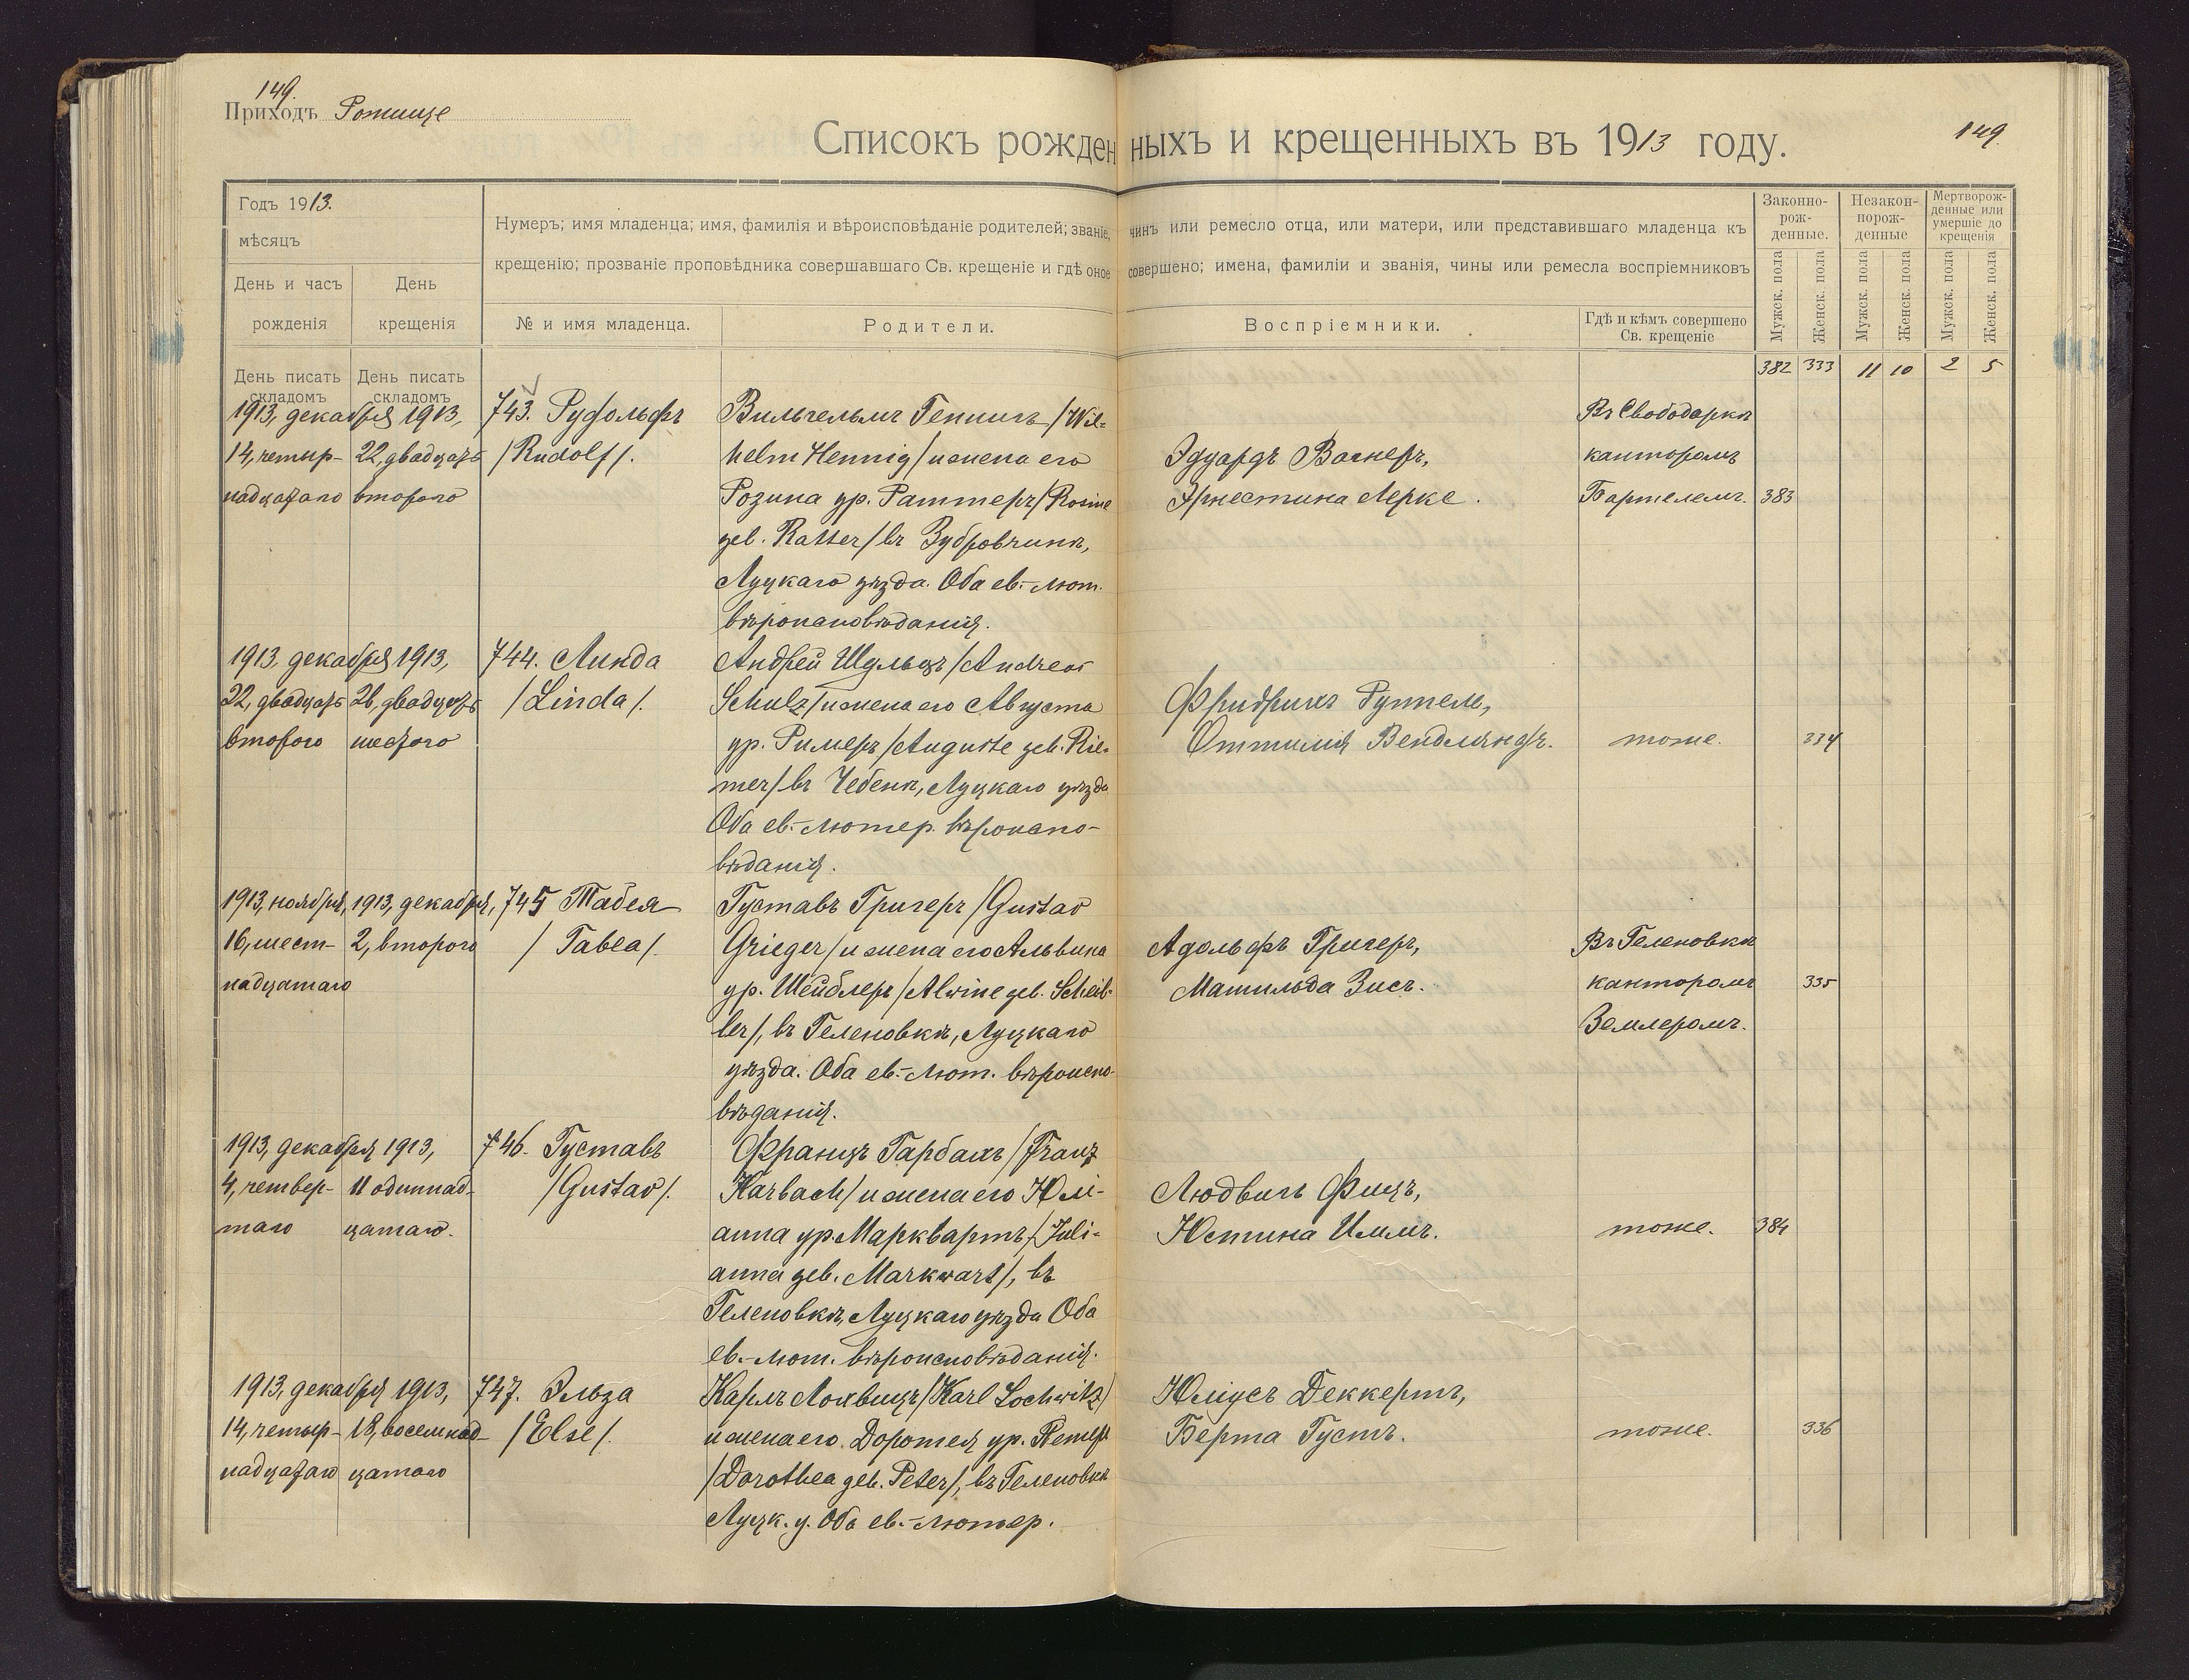 149.
Приходъ Рожище
Списокъ рожденныхъ и крещенныхъ въ 1913 году.
149.
Годъ 1913.
мѣсяцъ
День и часъ рожденія
День крещенія
Нумеръ; имя младенца; имя, фамилія и вѣроисповѣданіе родителей; званіе, чинъ или ремесло отца, или матери, или представившаго младенца къ
крещенію; прозваніе проповѣдника совершавшаго Св. крещеніе и гдѣ оное совершено; имена, фамиліи и званія, чины или ремесла воспріемниковъ
№ и имя младенца.
Родители.
Воспріемники.
Гдѣ и кѣмъ совершено
Св. крещеніе
Законно-
рож-
денные.
Незакон-
норож-
денные
Мертворож-
денные или
умершіе до
крещенія
Мужск. пола
Женск. пола
Мужск. пола
Женск. пола
Мужск. пола
Женск. пола
День писать
складомъ
День писать
складомъ
382 333 11 10 2 5
1913, декабря 1913,
14, четыр- 22, двадцать
надцатаго второго
743. Рудольфъ
/Rudolf/.
Вильгельмъ Геннигъ /Wil-
helm Hennig/ и жена его
Розина ур. Раттеръ /Rosine
geb. Ratter/ въ Зубровчинѣ,
Луцкаго уѣзда. Оба ев.-лют.
вѣроисповѣданія.
Эдуардъ Вагнеръ,
Эрнестина Лерке.
Въ Свободаркѣ
канторомъ
Бартелемъ.
383
1913, декабря 1913,
22, двадцать 26, двадцать
второго шестого
744. Линда
/Linda/.
Андрей Шульцъ /Andreas
Schulz/ и жена его Августа
ур. Римеръ /Auguste geb. Rie-
mer/ въ Чебенѣ, Луцкаго уѣзда
Оба ев.-лютер. вѣроиспо-
вѣданія.
Фридрихъ Руппель,
Оттилія Вендляндъ.
тоже.
334
1913, ноября, 1913, декабря,
16, шест- 2, второго
надцатаго
745 Табея
/Tabea/.
Густавъ Григеръ /Gustav
Grieger/ и жена его Альвина
ур. Шейблеръ /Alwine geb. Scheib-
ler/, въ Геленовкѣ, Луцкаго
уѣзда. Оба ев.-лют. вѣроиспо-
вѣданія.
Адольфъ Григеръ,
Матильда Зисъ.
Въ Геленовкѣ
канторомъ
Землеромъ.
335
1913, декабря 1913,
4, четвер- 11 одиннад-
таго цатаго.
746. Густавъ
/Gustav/.
Францъ Гарбахъ /Franz
Harbach/ и жена его Юлі-
анна ур. Марквартъ /Juli-
anna geb. Markwart/, въ
Геленовкѣ, Луцкаго уѣзда Оба
ев.-лют. вѣроисповѣданія.
Людвигъ Фицъ,
Юстина Иммъ.
тоже.
384
1913, декабря 1913,
14, четыр- 18, восемнад-
надцатаго цатаго
747. Эльза
/Else/.
Карлъ Лохвицъ /Karl Lochwitz/
и жена его Доротея ур. Петеръ
/Dorothea geb. Peter/, въ Геленовкѣ
Луцк. у. Оба ев.-лютер.
Юліусъ Деккертъ,
Берта Густъ.
тоже.
336